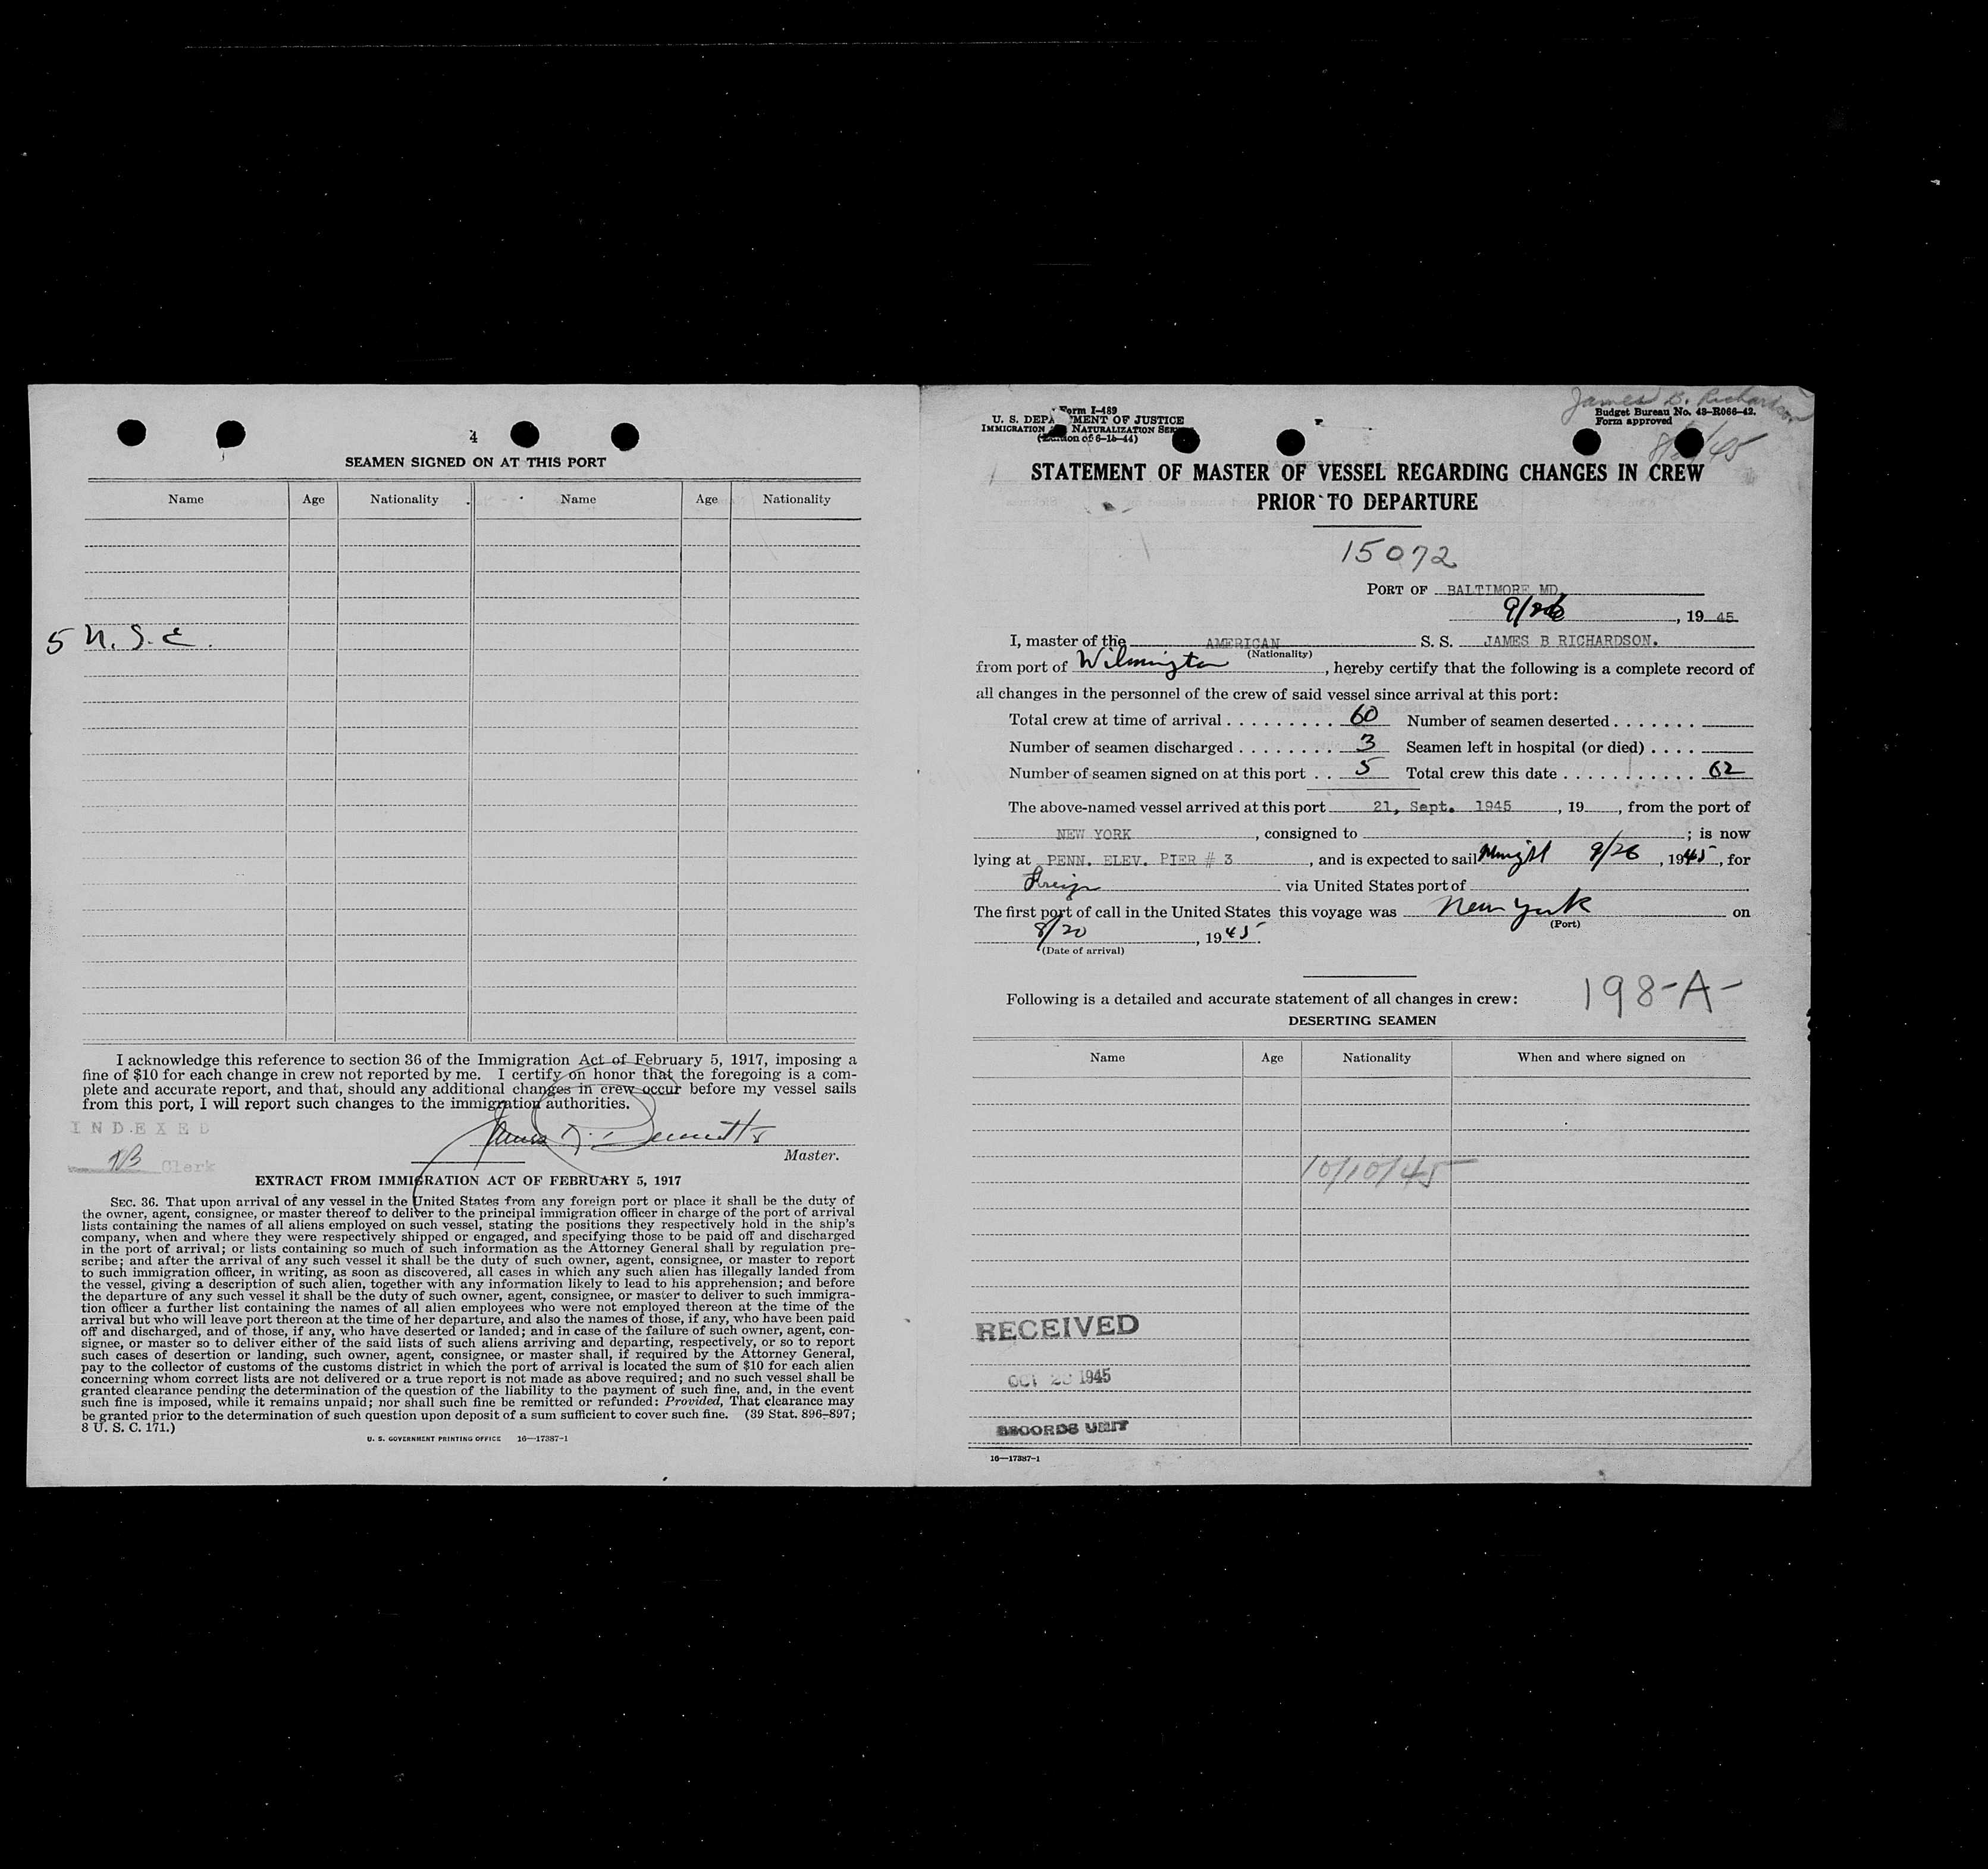 4
SEAMEN SIGNED ON AT THIS PORT
Name Age Nationality Name Age Nationality
5
I acknowledge this reference to section 36 of the Immigration Act of February 5, 1917, imposing a
fine of $10 for each change in crew not reported by me. I certify on honor that the foregoing is a com-
plete and accurate report, and that, should any additional changes in crew occur before my vessel sails
from this port, I will report such changes to the immigration authorities.
INDEXED
Clerk
James
Master.
EXTRACT FROM IMMIGRATION ACT OF FEBRUARY 5, 1917
SEC. 36. That upon arrival of any vessel in the United States from any foreign port or place it shall be the duty of
the owner, agent, consignee, or master thereof to deliver to the principal immigration officer in charge of the port of arrival
lists containing the names of all aliens employed on such vessel, stating the positions they respectively hold in the ship's
company, when and where they were respectively shipped or engaged, and specifying those to be paid off and discharged
in the port of arrival; or lists containing so much of such information as the Attorney General shall by regulation pre-
scribe; and after the arrival of any such vessel it shall be the duty of such owner, agent, consignee, or master to report
to such immigration officer, in writing, as soon as discovered, all cases in which any such alien has illegally landed from
the vessel, giving a description of such alien, together with any information likely to lead to his apprehension; and before
the departure of any such vessel it shall be the duty of such owner, agent, consignee, or master to deliver to such immigra-
tion officer a further list containing the names of all alien employees who were not employed thereon at the time of the
arrival but who will leave port thereon at the time of her departure, and also the names of those, if any, who have been paid
off and discharged, and of those, if any, who have deserted or landed; and in case of the failure of such owner, agent, con-
signee, or master so to deliver either of the said lists of such aliens arriving and departing, respectively, or so to report
such cases of desertion or landing, such owner, agent, consignee, or master shall, if required by the Attorney General,
pay to the collector of customs of the customs district in which the port of arrival is located the sum of $10 for each alien
concerning whom correct lists are not delivered or a true report is not made as above required; and no such vessel shall be
granted clearance pending the determination of the question of the liability to the payment of such fine, and, in the event
such fine is imposed, while it remains unpaid; nor shall such fine be remitted or refunded: Provided, That clearance may
be granted prior to the determination of such question upon deposit of a sum sufficient to cover such fine. (39 Stat. 896–897;
8 U. S. C. 171.)
U. S. GOVERNMENT PRINTING OFFICE 16—17387-1
James B. Richardson
Form I-489
U. S. DEPARTMENT OF JUSTICE
IMMIGRATION NATURALIZATION
(Edition of 6-15-44)
Budget Bureau No. 43-R066-42.
Form approved
STATEMENT OF MASTER OF VESSEL REGARDING CHANGES IN CREW
PRIOR TO DEPARTURE
15072
PORT OF BALTIMORE MD.
9/26, 1945
I, master of the AMERICAN S. S. JAMES B RICHARDSON.
(Nationality)
from port of Wilmington, hereby certify that the following is a complete record of
all changes in the personnel of the crew of said vessel since arrival at this port:
Total crew at time of arrival . . . . . . . . . 60 Number of seamen deserted . . . . . . .
Number of seamen discharged . . . . . . . . 3 Seamen left in hospital (or died) . . . .
Number of seamen signed on at this port . . 5 Total crew this date . . . . . . . . . . . 62
The above-named vessel arrived at this port 21, Sept. 1945, 19 , from the port of
NEW YORK, consigned to ; is now
lying at PENN. ELEV. PIER # 3, and is expected to sail 9/26, 1945, for
Foreign via United States port of
The first port of call in the United States this voyage was New York on
(Port)
8/20, 1945.
(Date of arrival)
198-A-
Following is a detailed and accurate statement of all changes in crew:
DESERTING SEAMEN
Name Age Nationality When and where signed on
10/10/45
RECEIVED
OCT 1945
RECORDS UNIT
16—17387-1